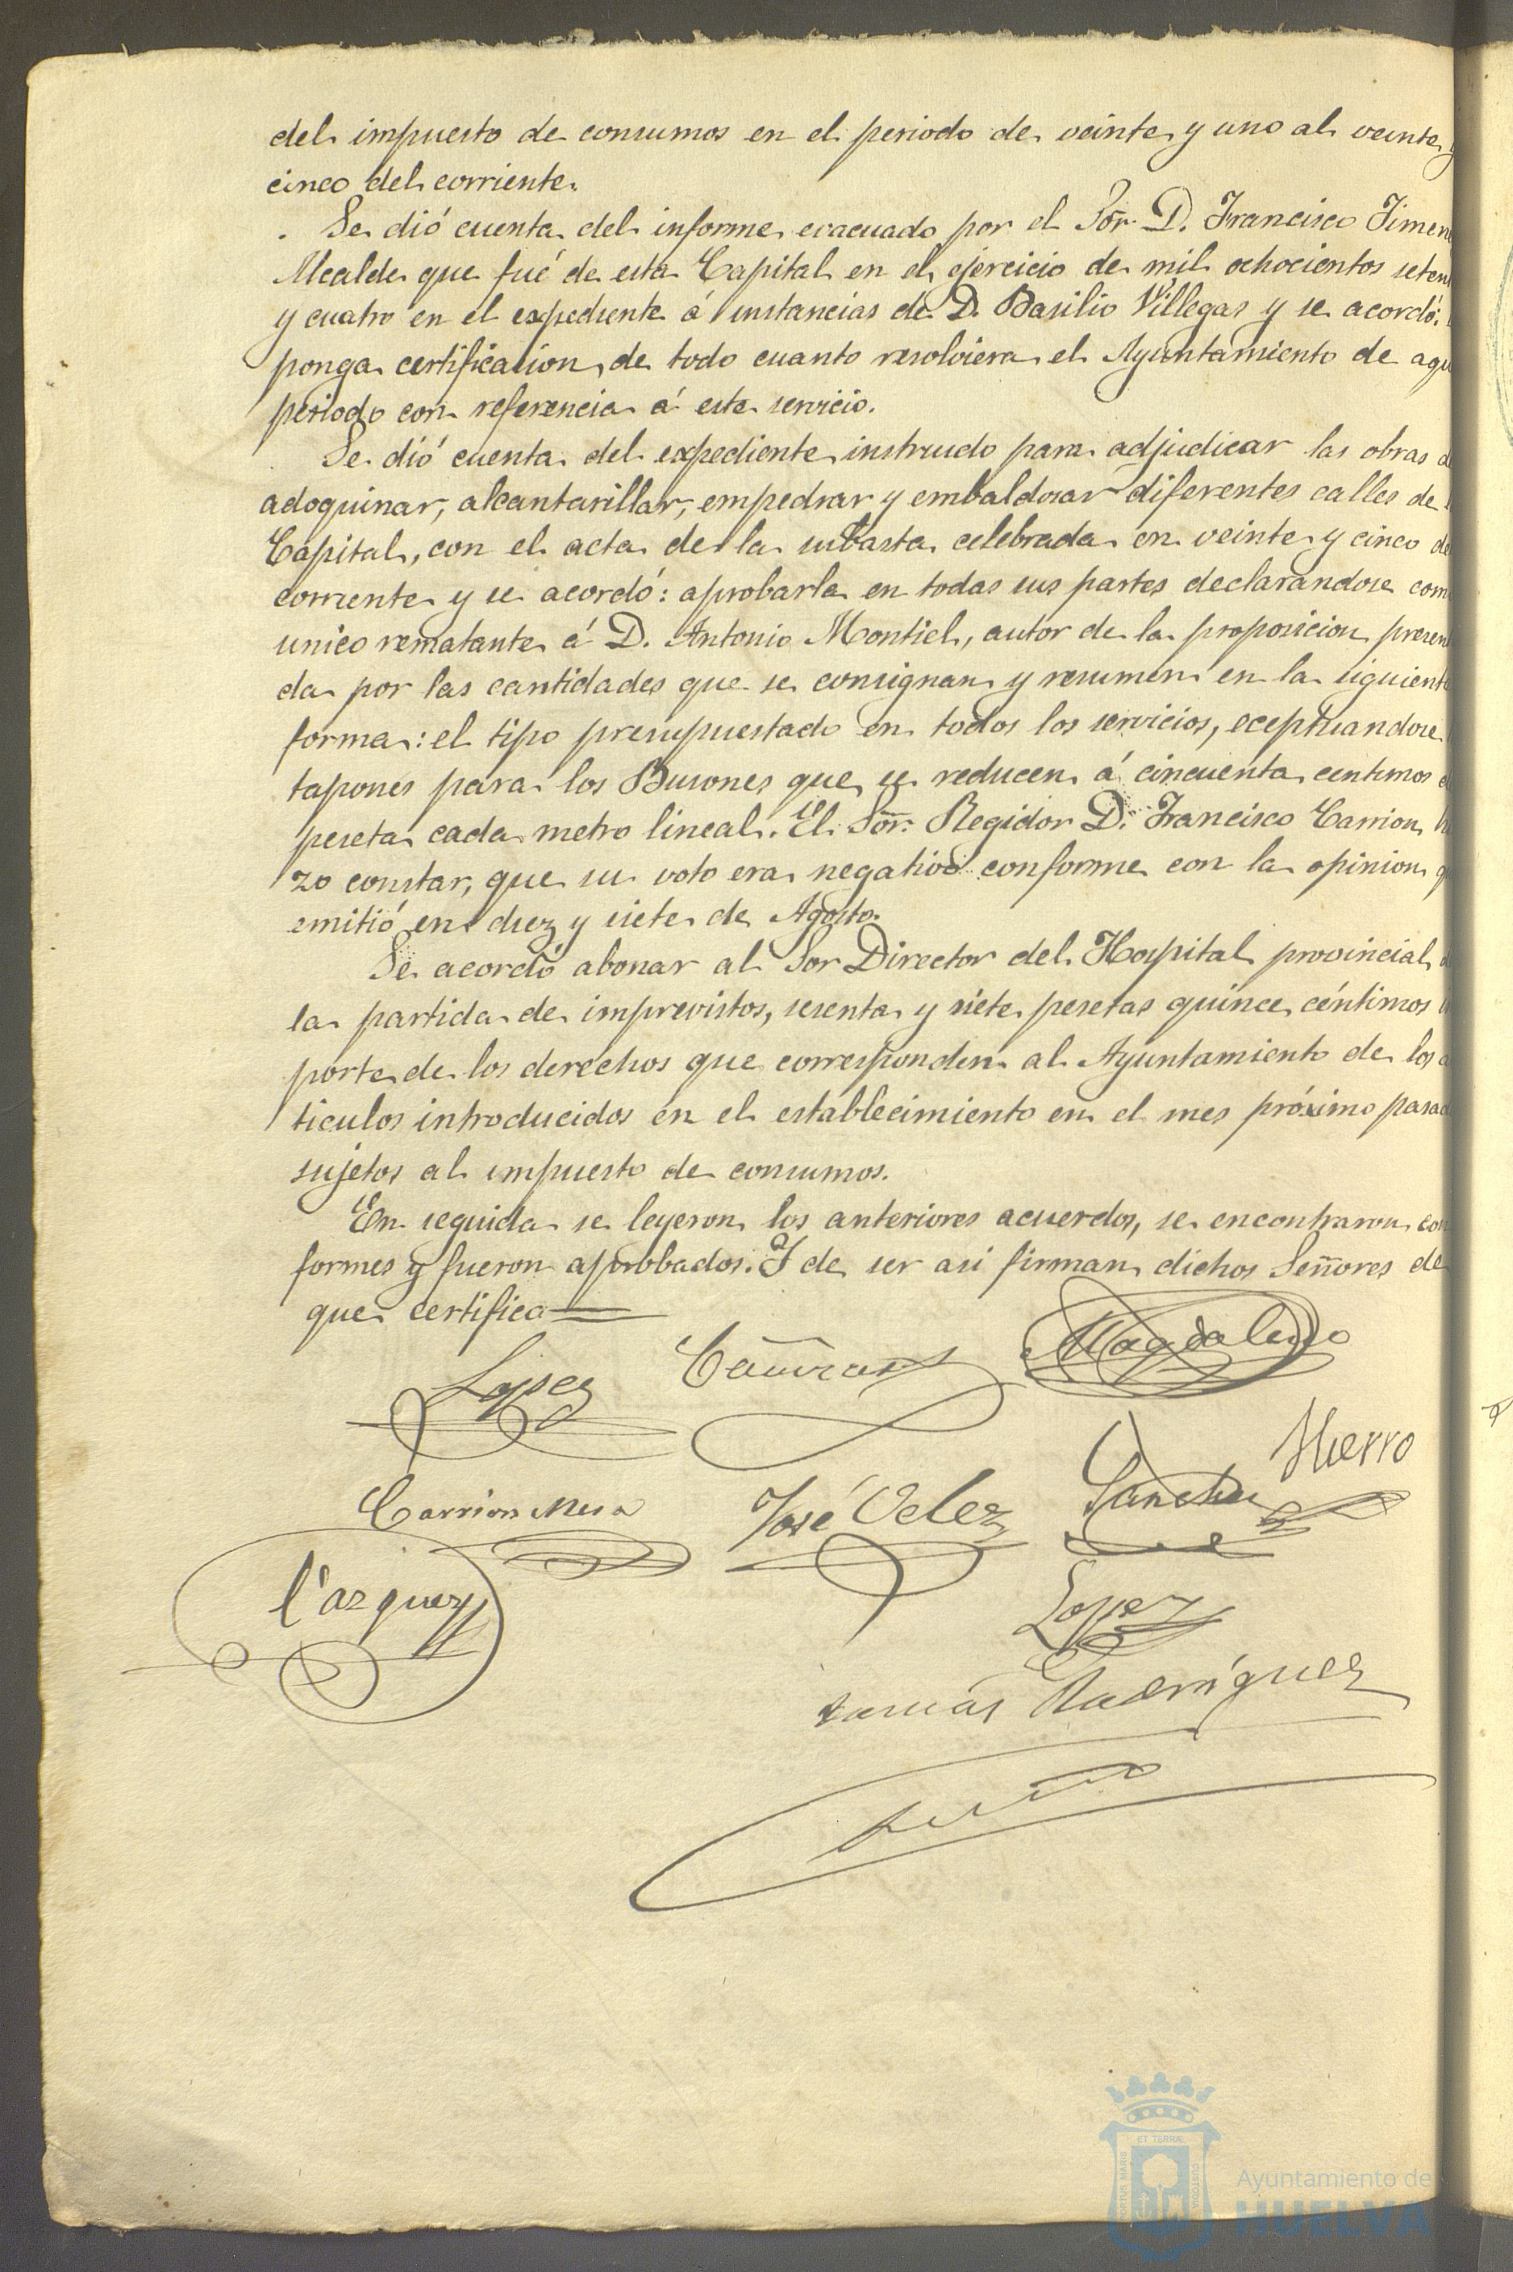 del impuesto de consumos en el periodo de veinte y uno al veinte y
cinco del corriente.
Se dió cuenta del informe evacuado por el Sor. D. Francisco Jimen
Alcalde que fué de esta Capital en el ejercicio de mil ochocientos seten
y cuatro en el expediente á instancias de D. Basilio Villegas y se acordó:
ponga certificacion de todo cuanto resolviera el Ayuntamiento de aqu
periodo con referencia á este servicio.
Se dió cuenta del expediente instruido para adjudicar las obras d
adoquinar, alcantarillar, empedrar y embaldosar diferentes calles de
Capital, con el acta de la subasta celebrada en veinte y cinco de
corriente y se acordó: aprobarla en todas sus partes declarandose com
unico rematante á D. Antonio Montiel, autor de la proposicion presen
da por las cantidades que se consignan y resumen en la siguiente
forma: el tipo presupuestado en todos los servicios, eceptuandose
tapones para los Busones que se reducen á cincuenta centimos d
peseta cada metro lineal. El Sor. Regidor D. Francisco Carrion h
zo constar, que su voto era negativo conforme con la opinion q
emitió en diez y siete de Agosto.
Se acordó abonar al Sor Director del Hospital provincial d
la partida de imprevistos, sesenta y siete pesetas quince céntimos
porte de los derechos que corresponden al Ayuntamiento de los a
ticulos introducidos en el establecimiento en el mes próximo pasad
sujetos al impuesto de consumos.
En seguida se leyeron los anteriores acuerdos, se encontraron con
formes y fueron aprobados. Y de ser asi firman dichos Señores de
que certifico
Lopez Cañizares Magdaleno
Hierro
Carrion Mesa José Velez Sanchez
Vazquez
Lopez
Tomás Rodríguez
PORTUS MARIS ET TERRÆ CUSTODIA
Ayuntamiento de
HUELVA